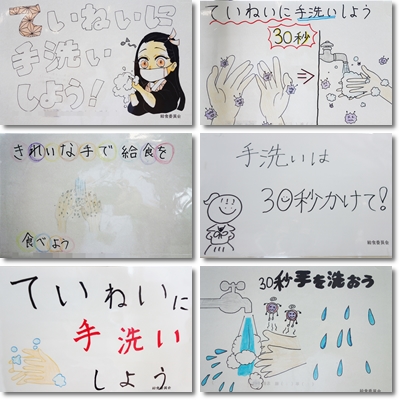 ていねいに
手洗い
しよう!
給食委員会
ていねいに手洗いしよう
30秒
きれいな手で給食を
食べよう
手洗いは
30秒かけて!
給食委員会
ていねいに
手洗い
しよう
給食委員会
30秒手を洗おう